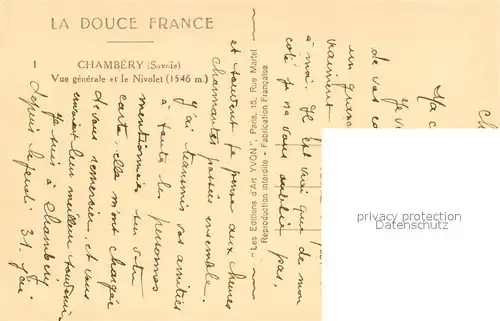 LA DOUCE FRANCE
1 CHAMBÉRY (Savoie)
Vue générale et le Nivolet (1546 m.)
"Les Editions d'Art YVON", Paris, 15, Rue Martel
Reproduction interdite - Fabrication Française
Ch
Ma c
Je v
de vos ca
un
vraiment
à moi. Il est vrai que de mon
côté je ne vous oublie pas,
et souvent je pense aux heures
charmantes passées ensemble.
J'ai transmis vos amitiés
à toutes les personnes
mentionnées sur votre
carte, elles m'ont chargée
de vous remercier, et vous
envoient leur meilleur souvenir.
Je suis à Chambéry
depuis le jeudi 31. J'ai
privacy protection